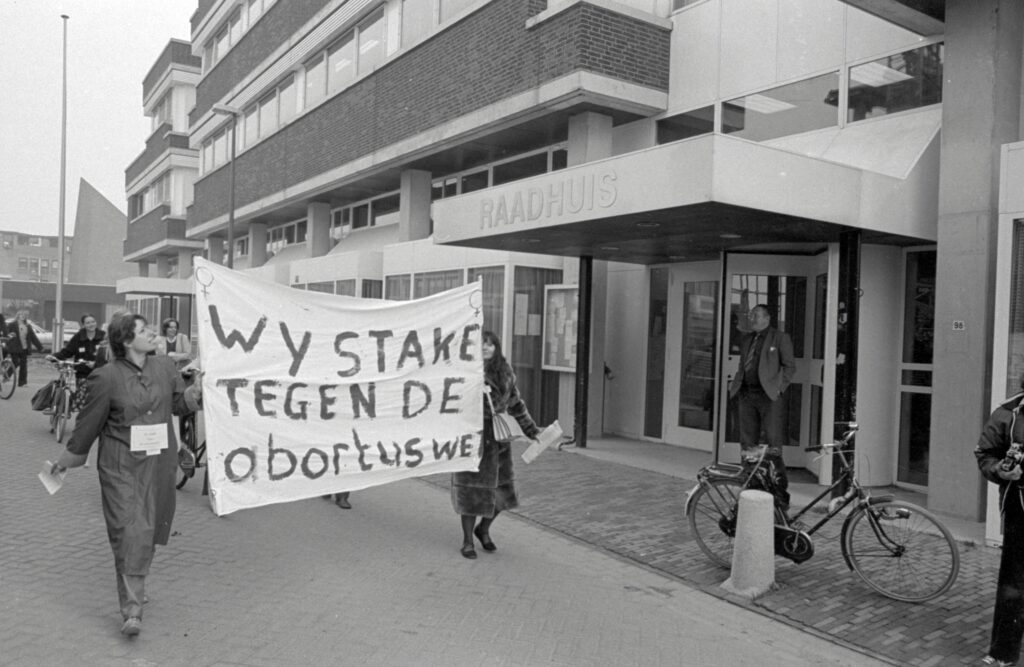 RAADHUIS
WY STAKE
TEGEN DE
abortus WE
98